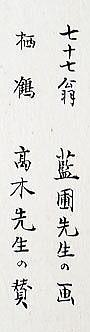 七十七翁 藍圃先生の画
栖鶴 高木先生の賛